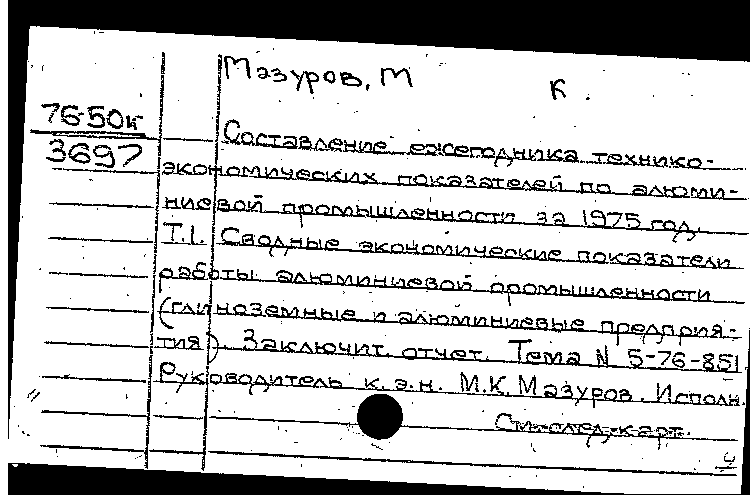 Мазуров, М К.
76-50к
3697
Составление ежегодника технико-
экономических показателей по алюми-
ниевой промышленности за 1975 год.
Т.1. Сводные экономические показатели
работы алюминиевой промышленности
(глиноземные и алюминиевые предприя-
тия). Заключит. отчет. Тема N 5-76-851
Руководитель к.э.н. М.К. Мазуров. Исполн.
См. след. карт.
4